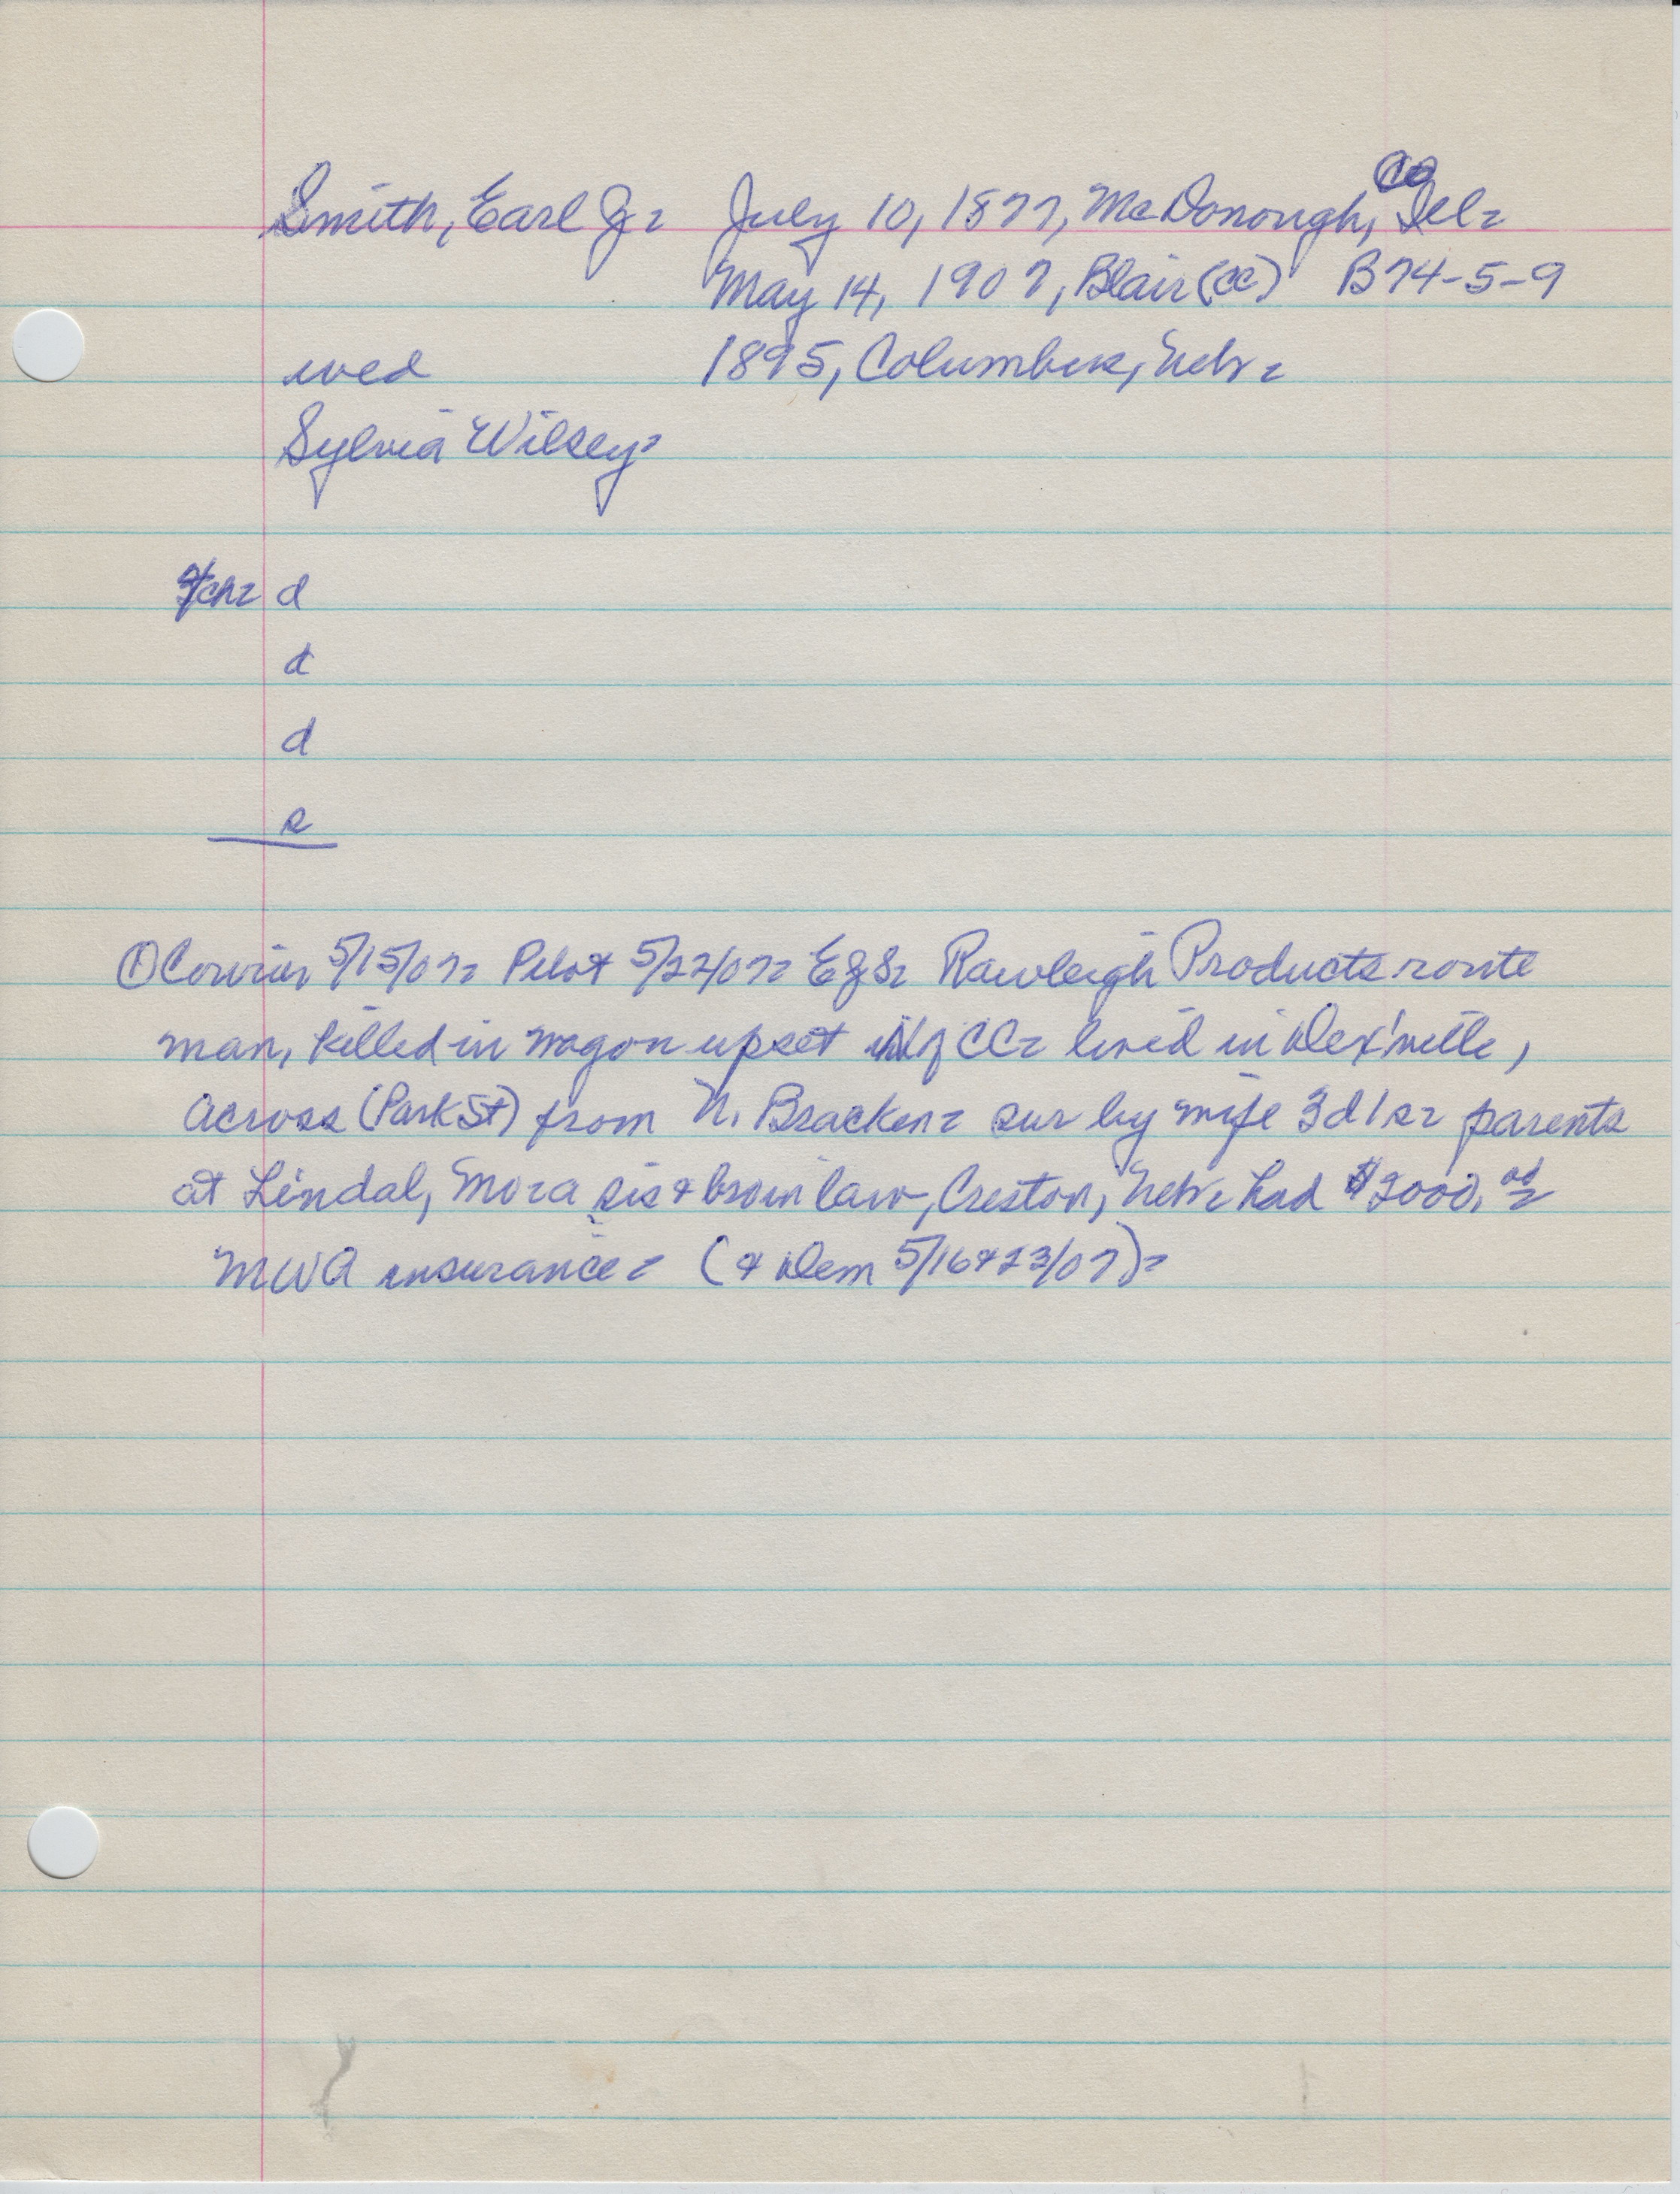 Smith, Earl J= July 10, 1877, McDonough, Co Ill=
May 14, 1907, Blair (CC) B74-5-9
wed 1895, Columbus, Nebr=
Sylvia Wilsey=
4/ch= d
d
d
s
① Courier 5/15/07= Pilot 5/22/07= EJS= Rawleigh Products route
man, killed in wagon upset N of CC= lived in Dex'ville,
across (Park St) from N. Bracken= sur by wife 3d 1s= parents
at Lindal, Mo= a sis & bro in law, Creston, Nebr= had $2000.00=
MWA insurance= (& Dem 5/16 & 23/07)=